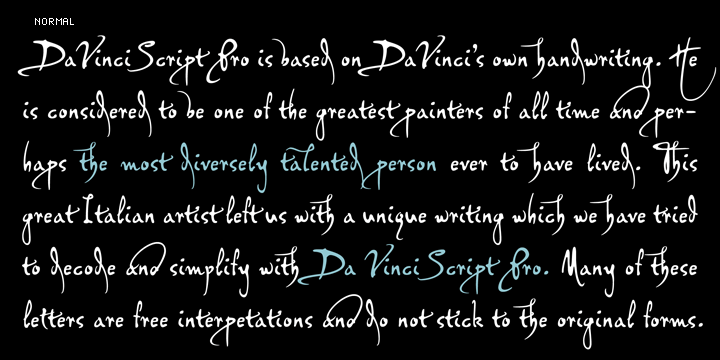 NORMAL
DaVinci Script Pro is based on DaVinci's own handwriting. He
is considered to be one of the greatest painters of all time and per-
haps the most diversely talented person ever to have lived. This
great Italian artist left us with a unique writing which we have tried
to decode and simplify with Da Vinci Script Pro. Many of these
letters are free interpetations and do not stick to the original forms.